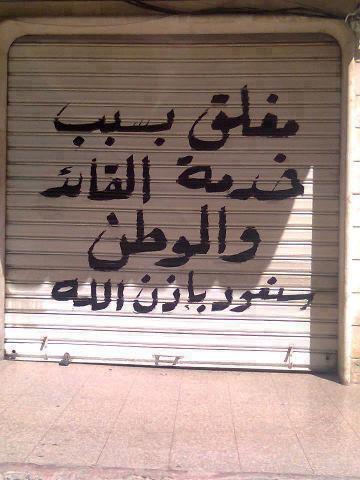 مغلق بسبب
خدمة القائد
والوطن
سنعود بإذن الله